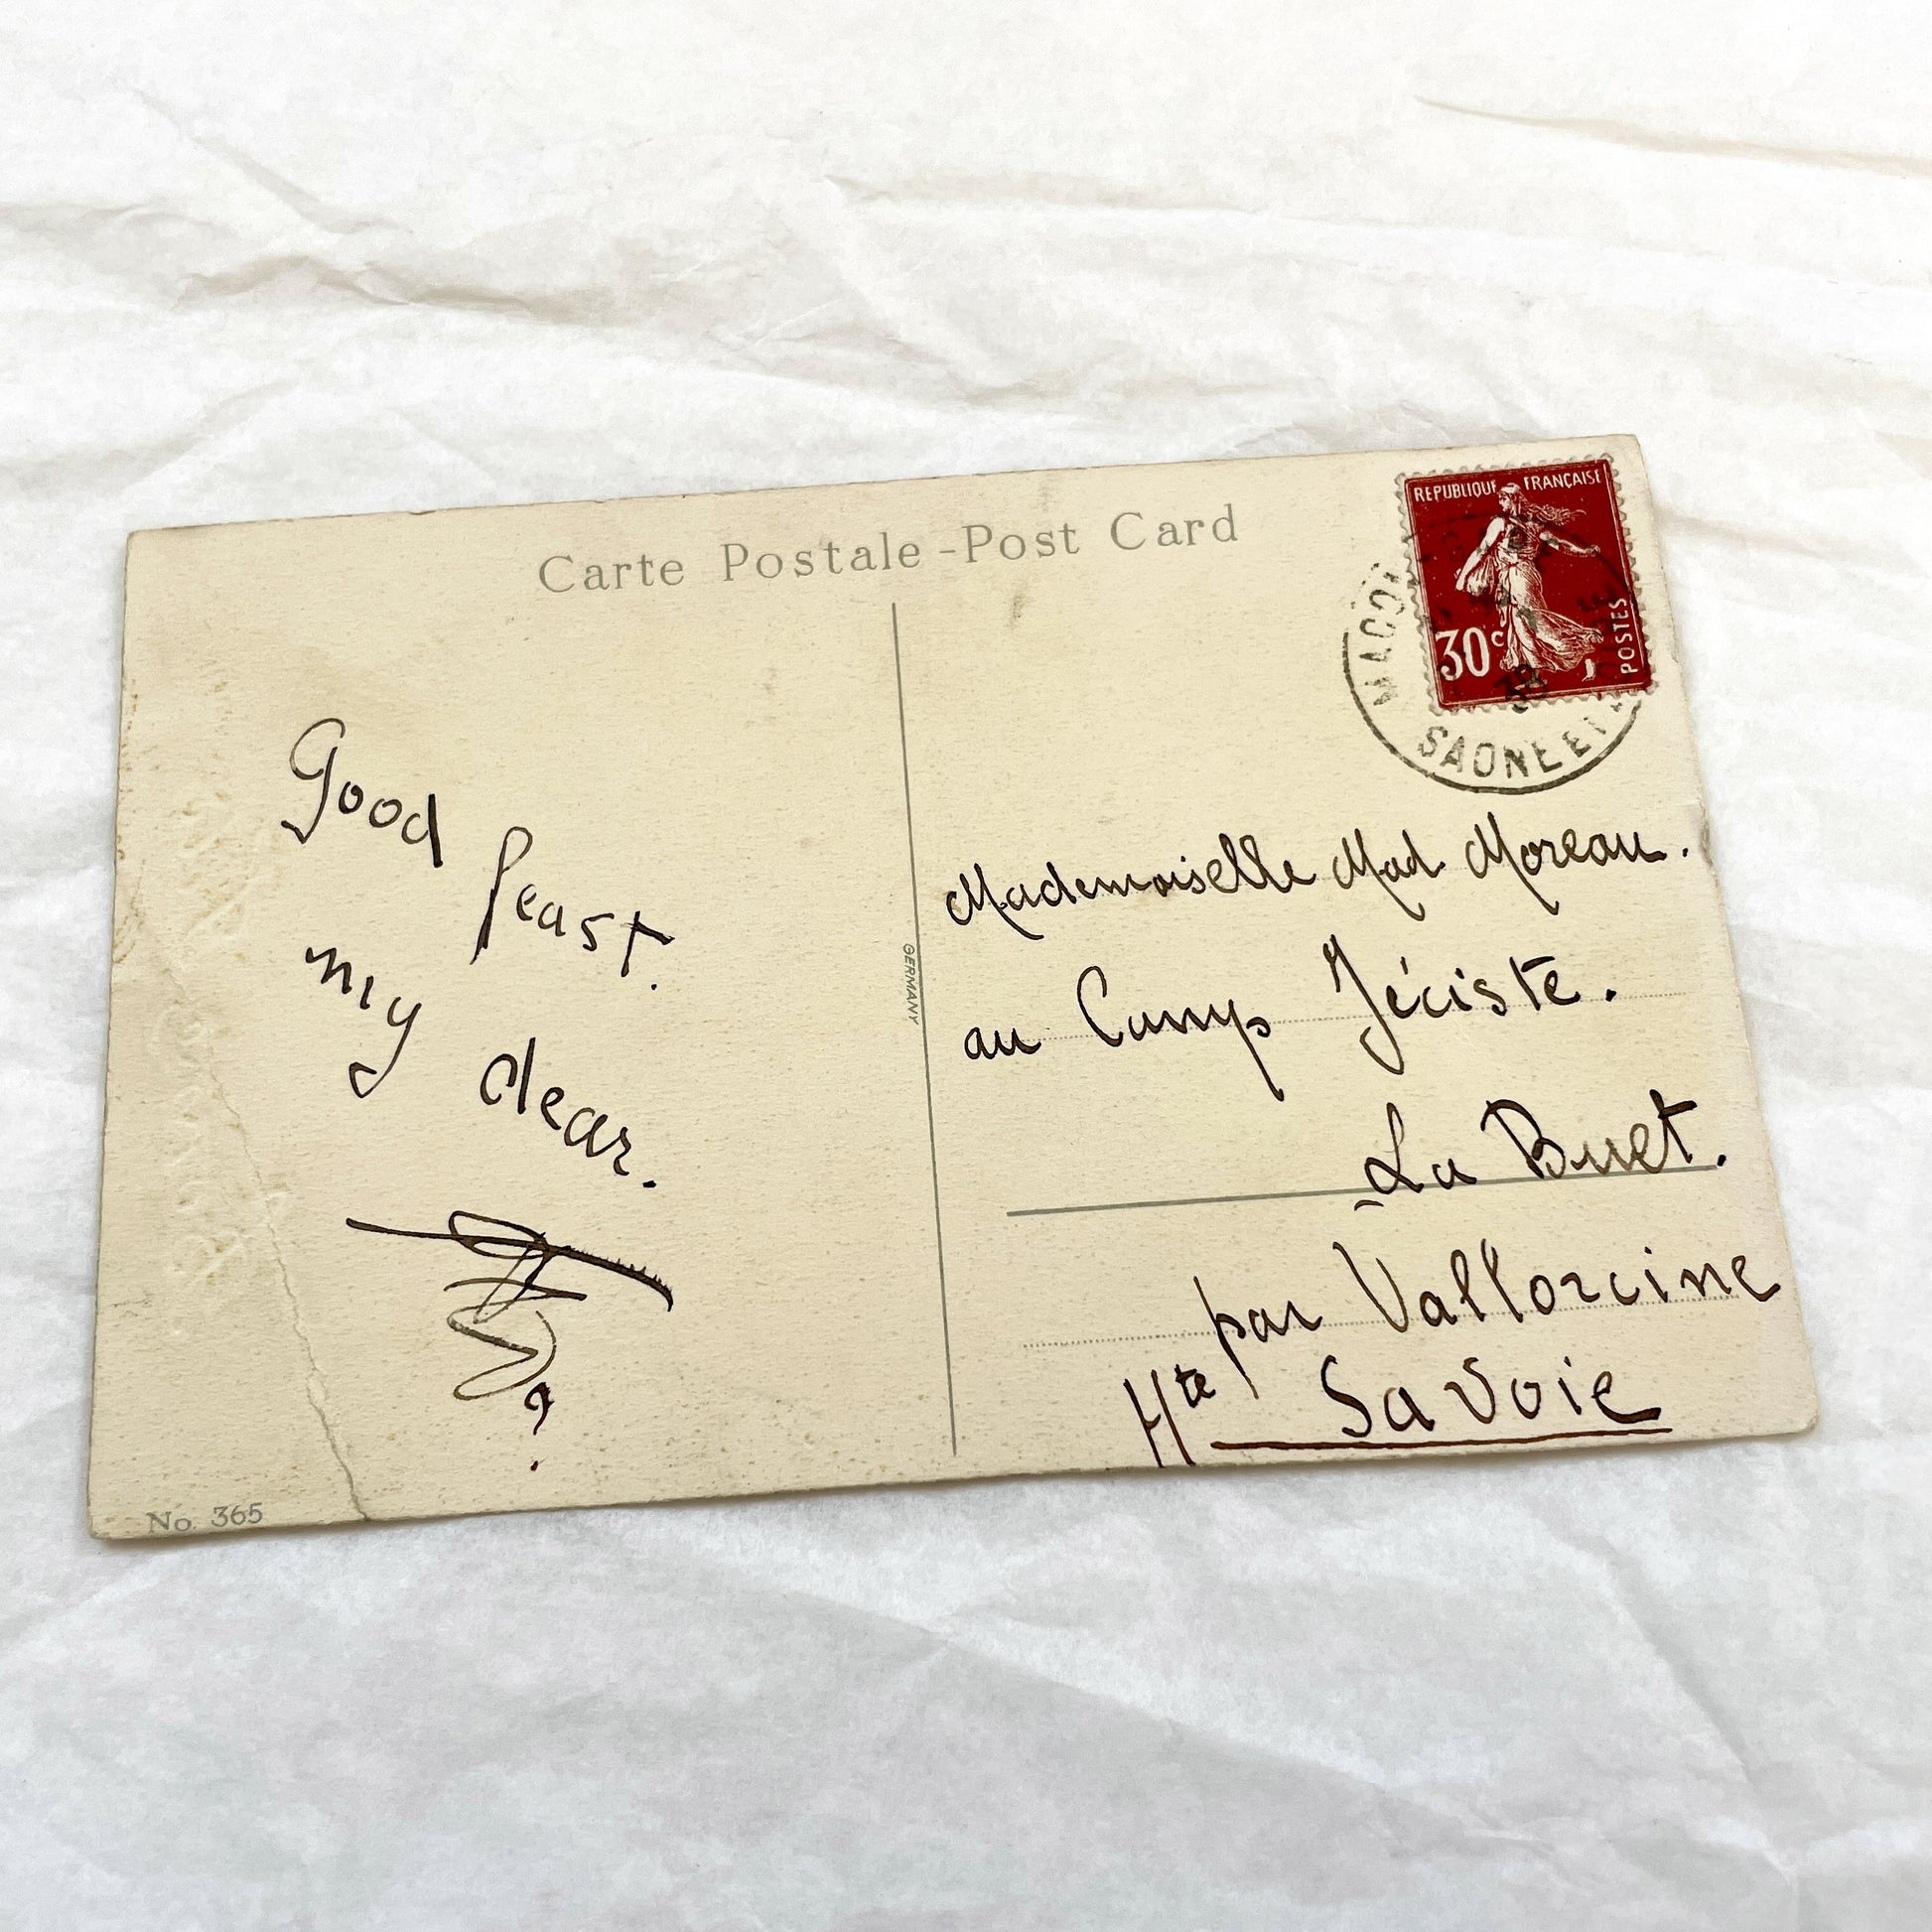 Carte Postale - Post Card
REPUBLIQUE FRANÇAISE
30c
POSTES
MACON
SAONE ET
38
Good
feast.
my
dear.
?
GERMANY
Mademoiselle Mad Moreau.
au Camp Jéciste.
La Buet.
par Vallorcine
Hte Savoie
No. 365